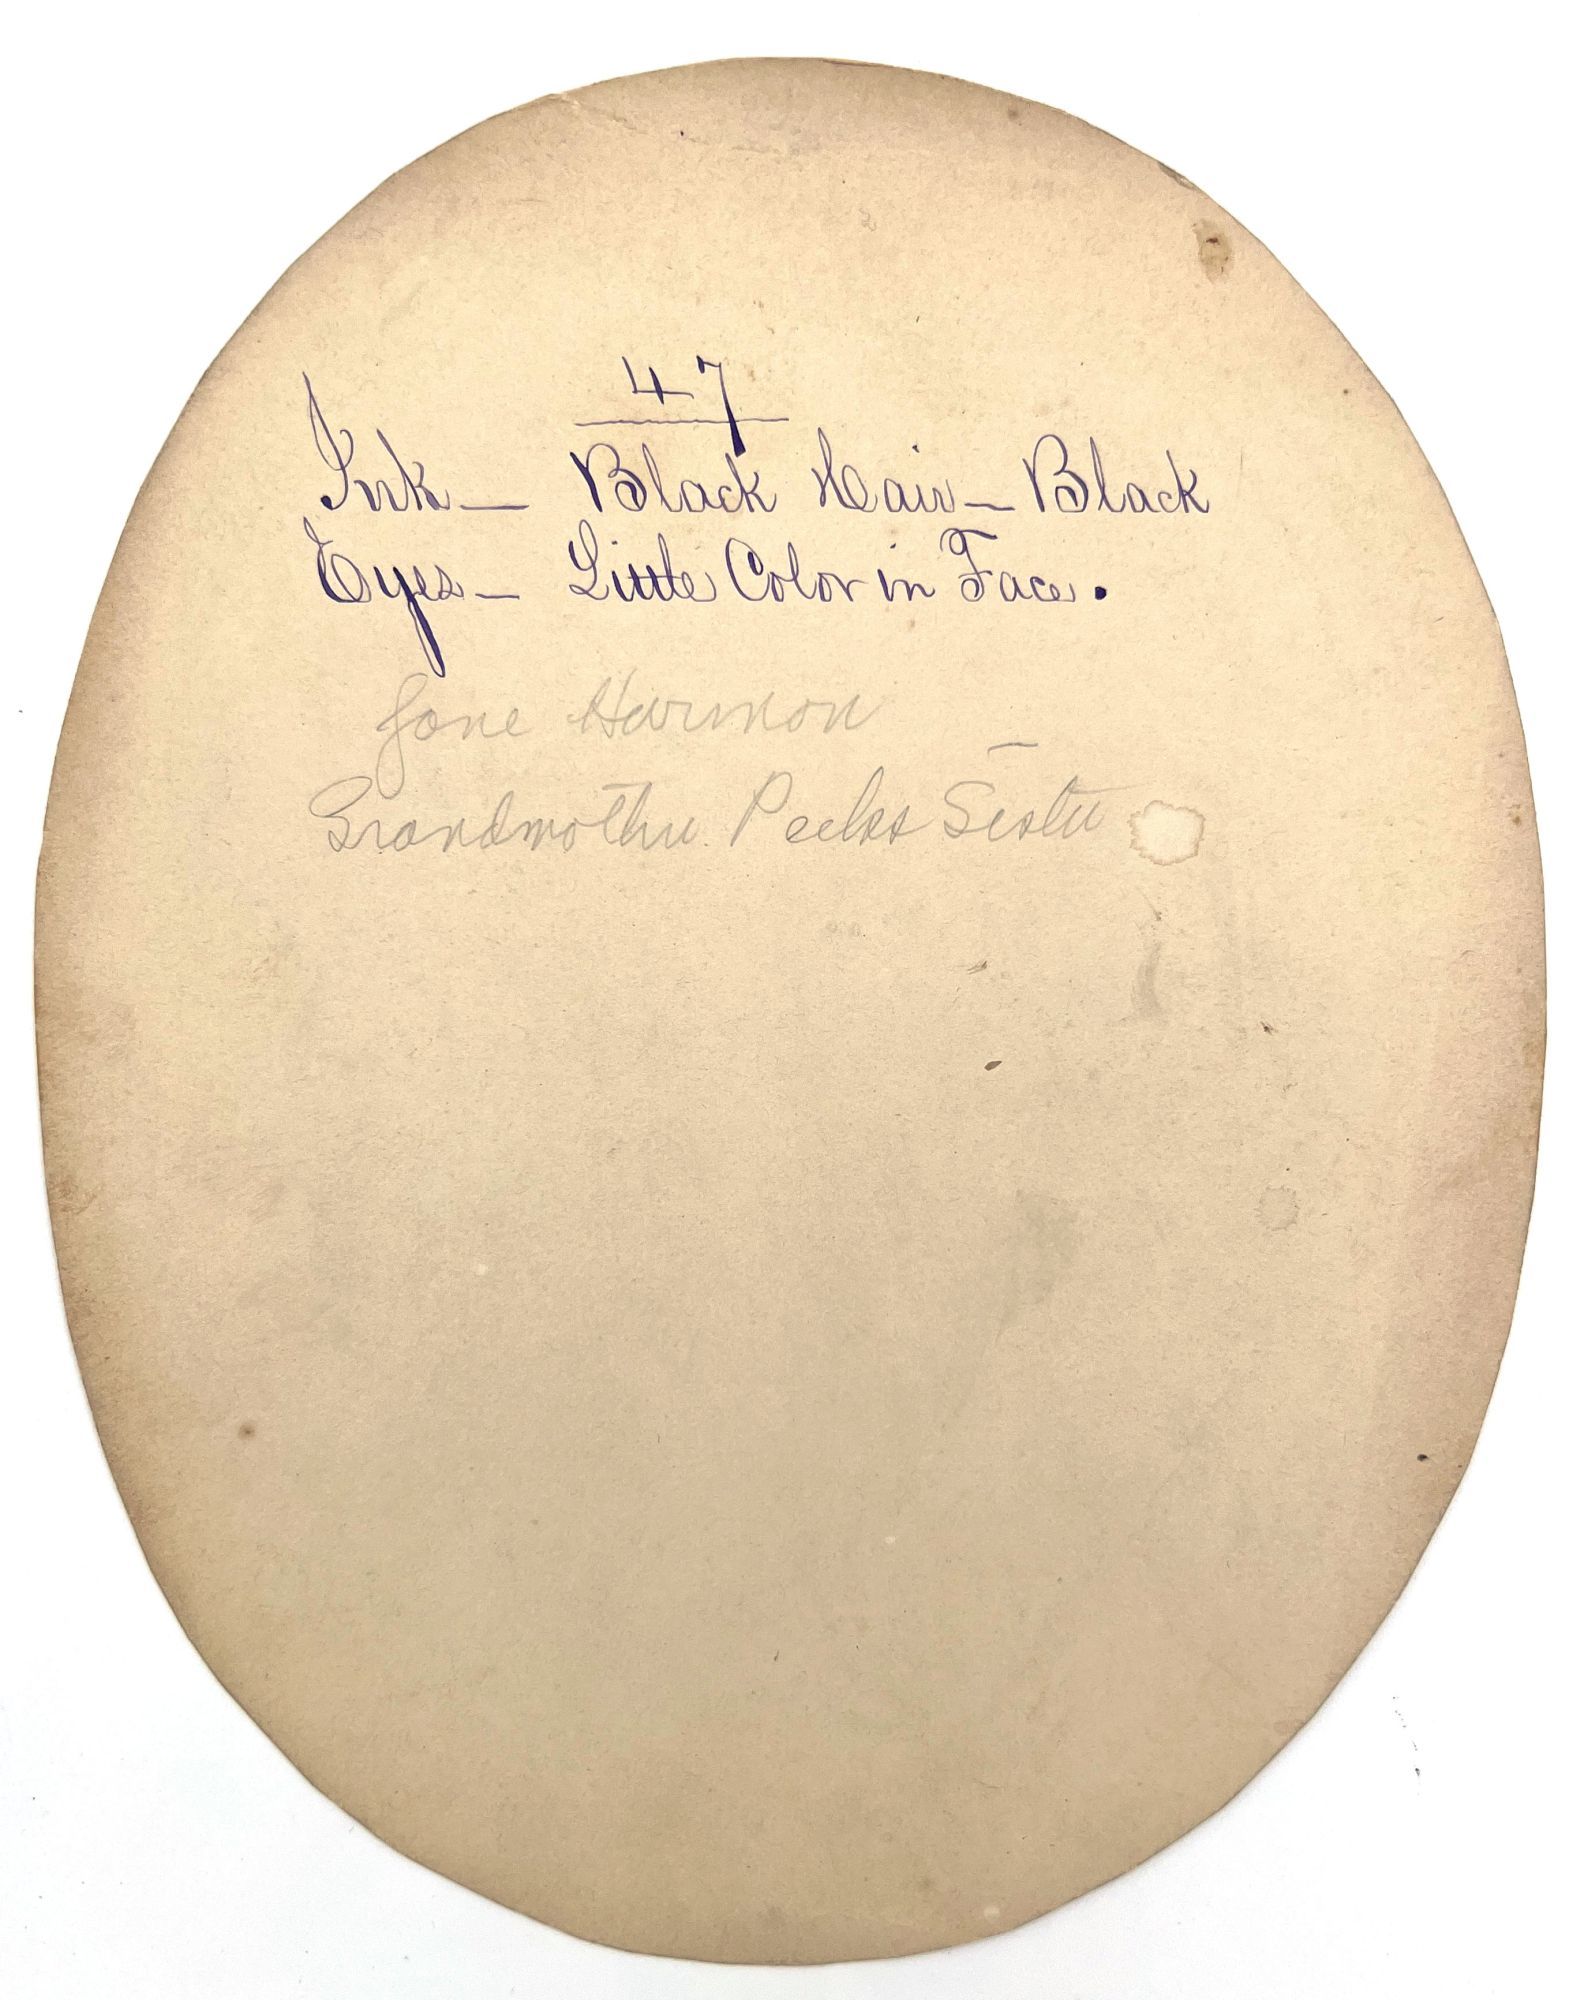 47
Ink — Black Hair — Black
Eyes — Little Color in Face.
Jane Harmon
Grandmother Peeks Sister